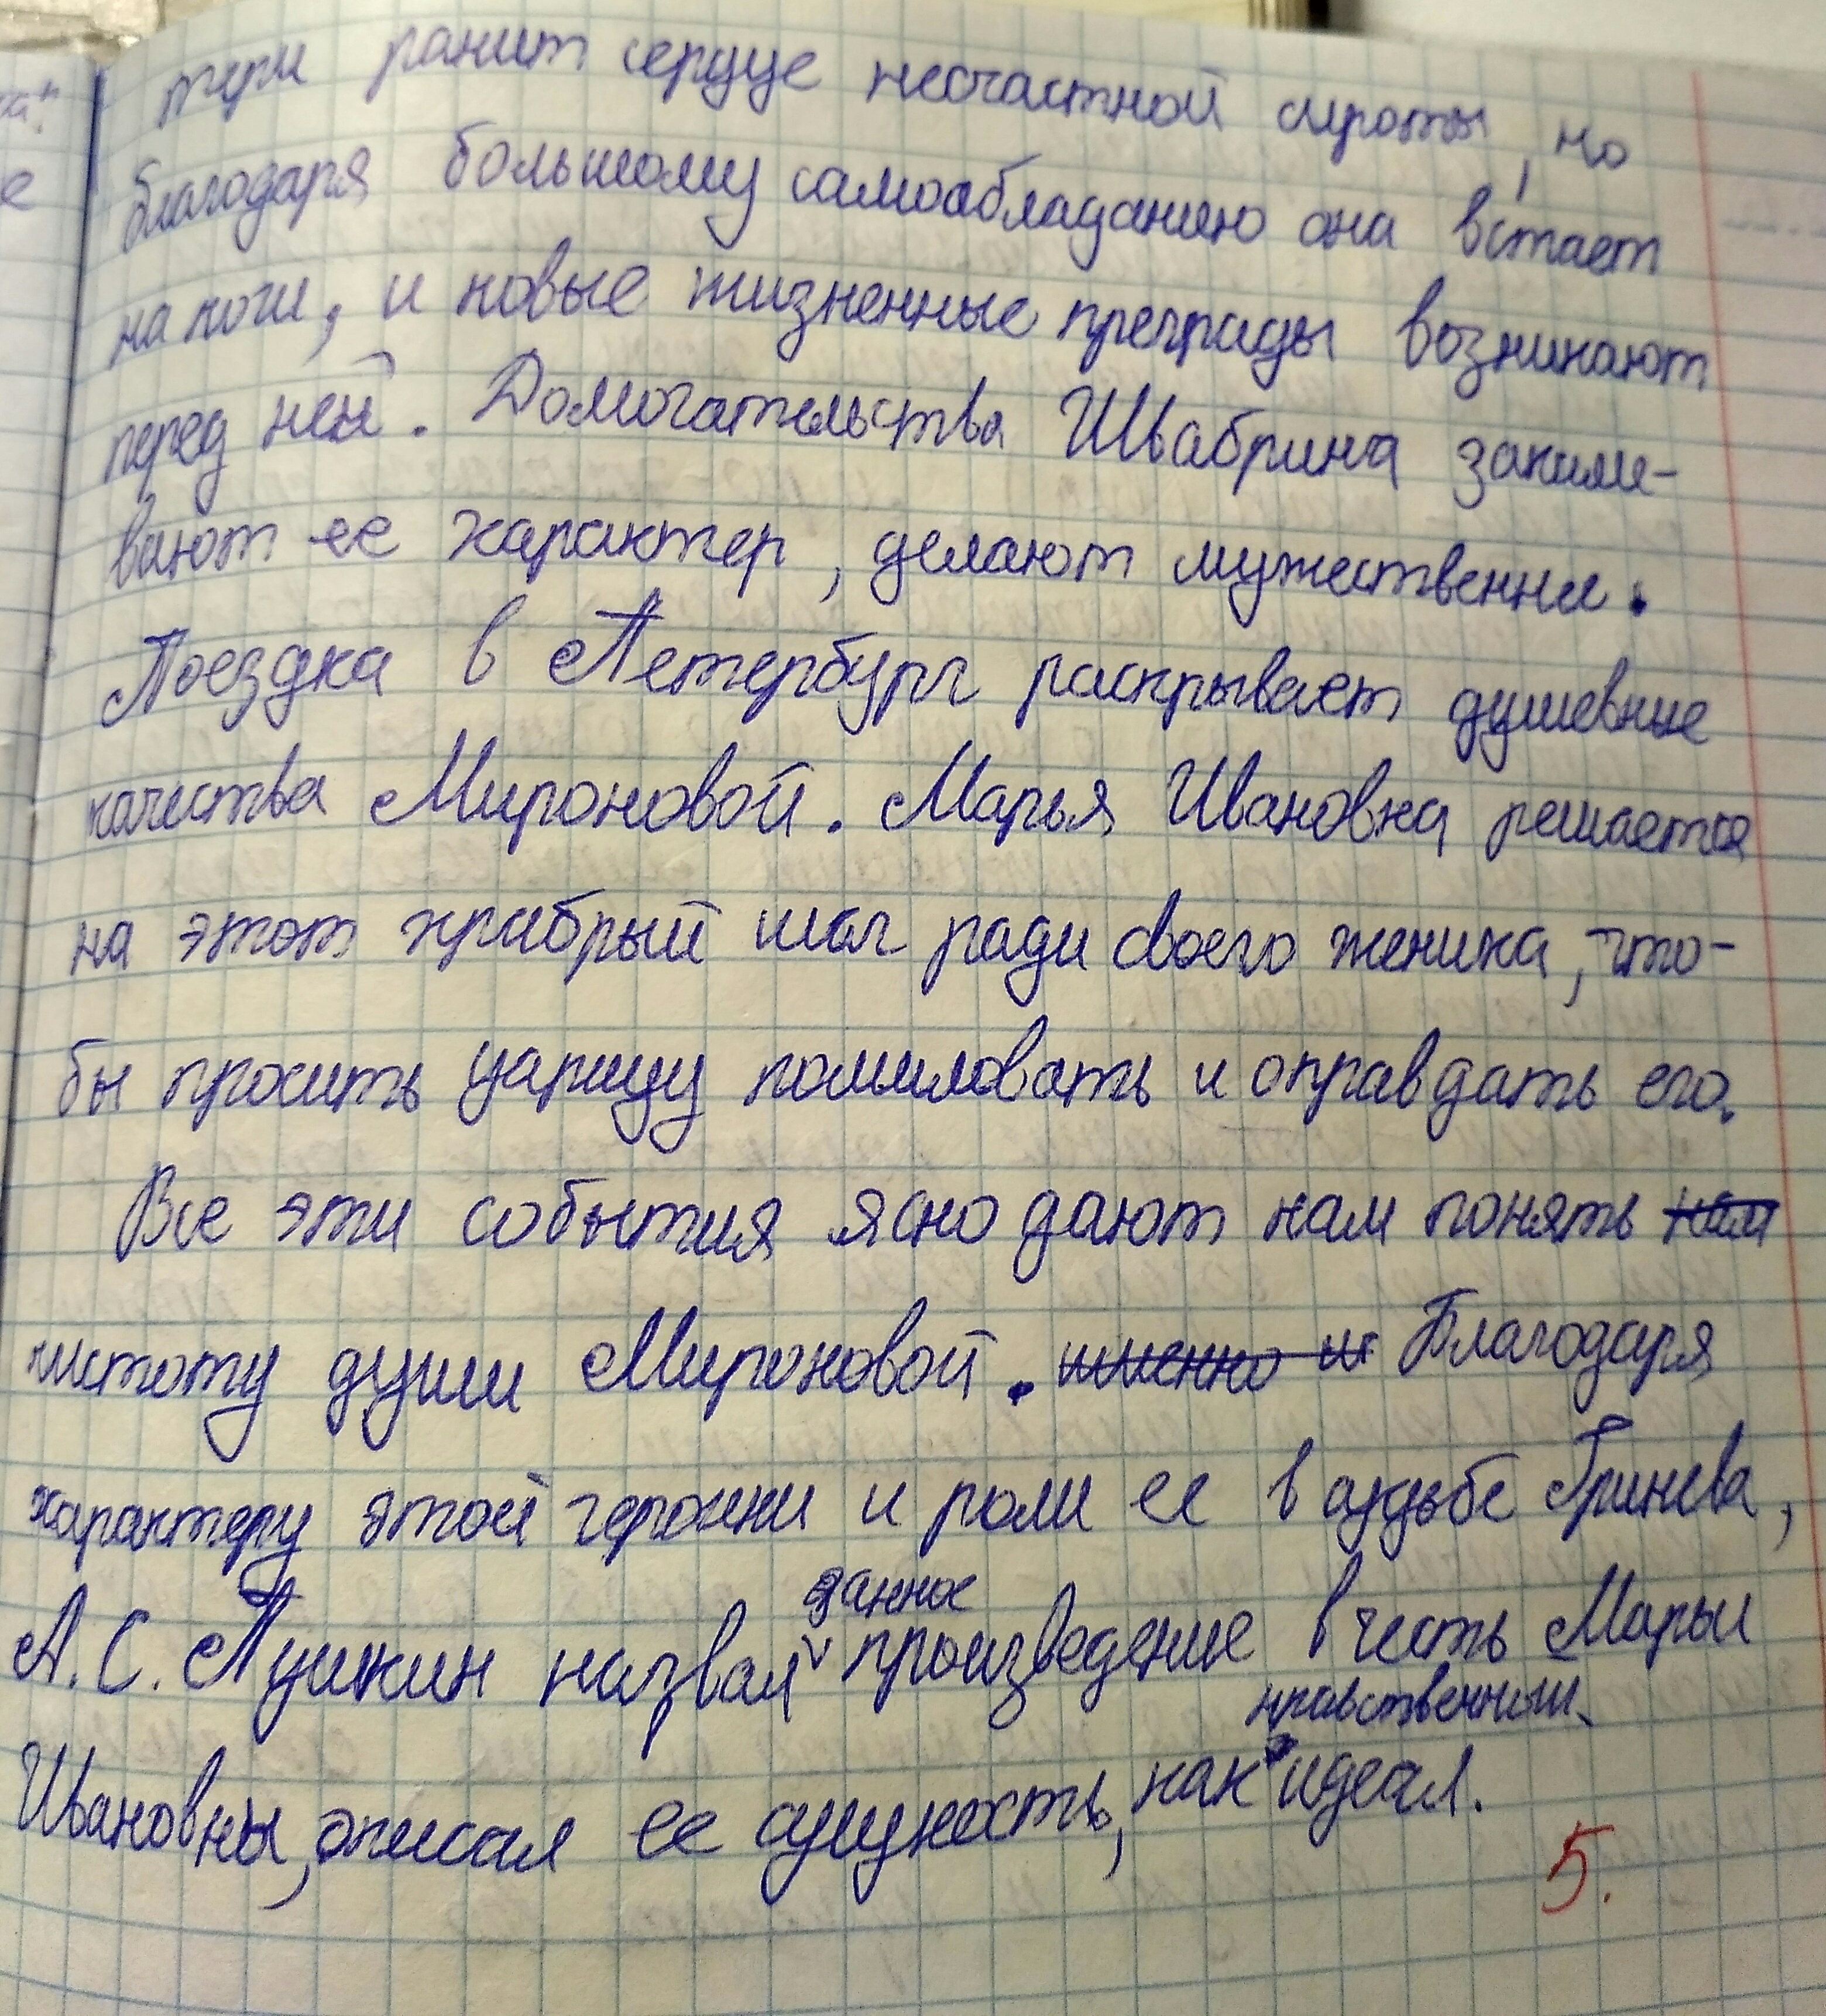 тери ранит сердце несчастной сироты, но
благодаря большому самообладанию она встает
на ноги, и новые жизненные преграды возникают
перед ней. Домогательства Швабрина закали-
вают ее характер, делают мужественне.
Поездка в Петербург раскрывает душевные
качества Мироновой. Марья Ивановна решается
на этот храбрый шаг ради своего жениха, что-
бы просить царицу помиловать и оправдать его.
Все эти события ясно дают нам понять нам
чистоту души Мироновой. именно и Благодаря
характеру этой героини и роли ее в судьбе Гринева,
данное
А. С. Пушкин назвал произведение в честь Марьи
нравственный
Ивановны, описал ее сущность, как идеал.
5.